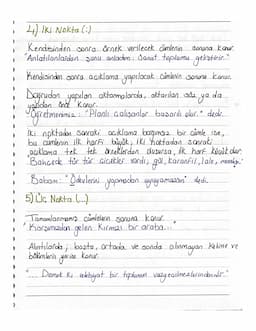 4) İki Nokta (:)
Kendisinden sonra örnek verilecek cümlenin sonuna konur.
"Anlatılanlardan şunu anladım: Sanat toplumu geliştirir."
Kendisinden sonra açıklama yapılacak cümlenin sonuna konur.
Doğrudan yapılan aktarmalarda, aktarılan söz ya da
yazıdan önce konur.
"Öğretmenimiz: "Planlı çalışanlar başarılı olur." dedi.
İki noktadan sonraki açıklama bağımsız bir cümle ise,
bu cümlenin ilk harfi büyük, iki noktadan sonraki
açıklama tek tek örneklerden oluşursa, ilk harf küçük olur.
Bahçede tür tür çiçekler vardı; gül, karanfil, lale,
Babam: "Ödevlerini yapmadan uyuyamazsın" dedi.
5) Üç Nokta (...)
Tamamlanmamış cümlelerin sonuna konur.
"Karşımızdan gelen kırmızı bir araba..."
Alıntılarda; başta, ortada ve sonda alınmayan kelime ve
bölümlerin yerine konur.
"... Demek ki edebiyat bir toplumun vazgeçilmezlerindendir."